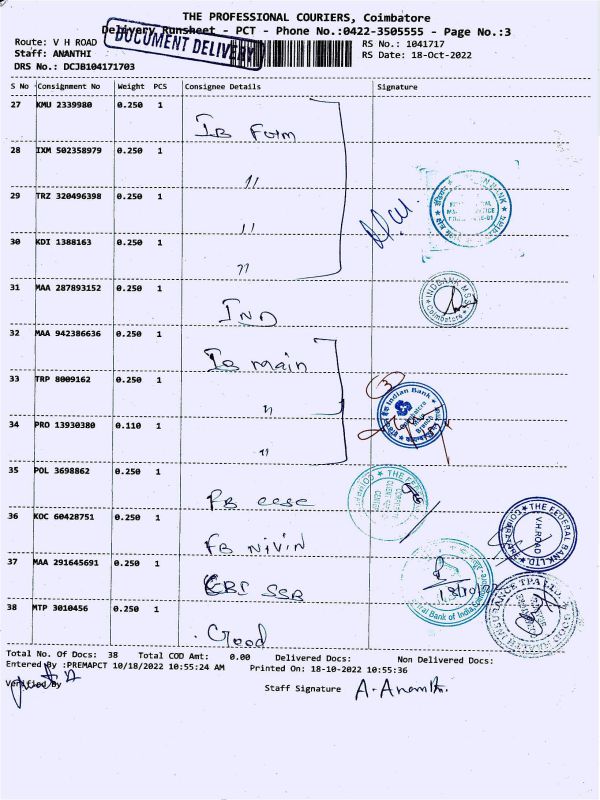 THE PROFESSIONAL COURIERS, Coimbatore
Delivery Runsheet - PCT - Phone No.:0422-3505555 - Page No.:3
DOCUMENT DELIVERY
Route: V H ROAD
RS No.: 1041717
Staff: ANANTHI
RS Date: 18-Oct-2022
DRS No.: DCJB104171703
S No Consignment No Weight PCS Consignee Details Signature
27 KMU 2339980 0.250 1
IB Form
28 IXM 502358979 0.250 1
"
29 TRZ 320496398 0.250 1
"
30 KDI 1388163 0.250 1
"
31 MAA 287893152 0.250 1
IND
INDBANK MSS Coimbatore
32 MAA 942386636 0.250 1
IB main
33 TRP 8009162 0.250 1
"
3
Indian Bank
Coimbatore
Main
Branch
34 PRO 13930380 0.110 1
"
35 POL 3698862 0.250 1
FB ccsc
THE FEDERAL
36 KOC 60428751 0.250 1
FB Nivin
THE FEDERAL BANK LTD.
V.H.ROAD
37 MAA 291645691 0.250 1
CBI SSB
Central Bank of India
38 MTP 3010456 0.250 1
Good
INSURANCE TPA LTD
Total No. Of Docs: 38 Total COD Amt: 0.00 Delivered Docs: Non Delivered Docs:
Entered By :PREMAPCT 10/18/2022 10:55:24 AM Printed On: 18-10-2022 10:55:36
Verified By
Staff Signature A. Ananthi